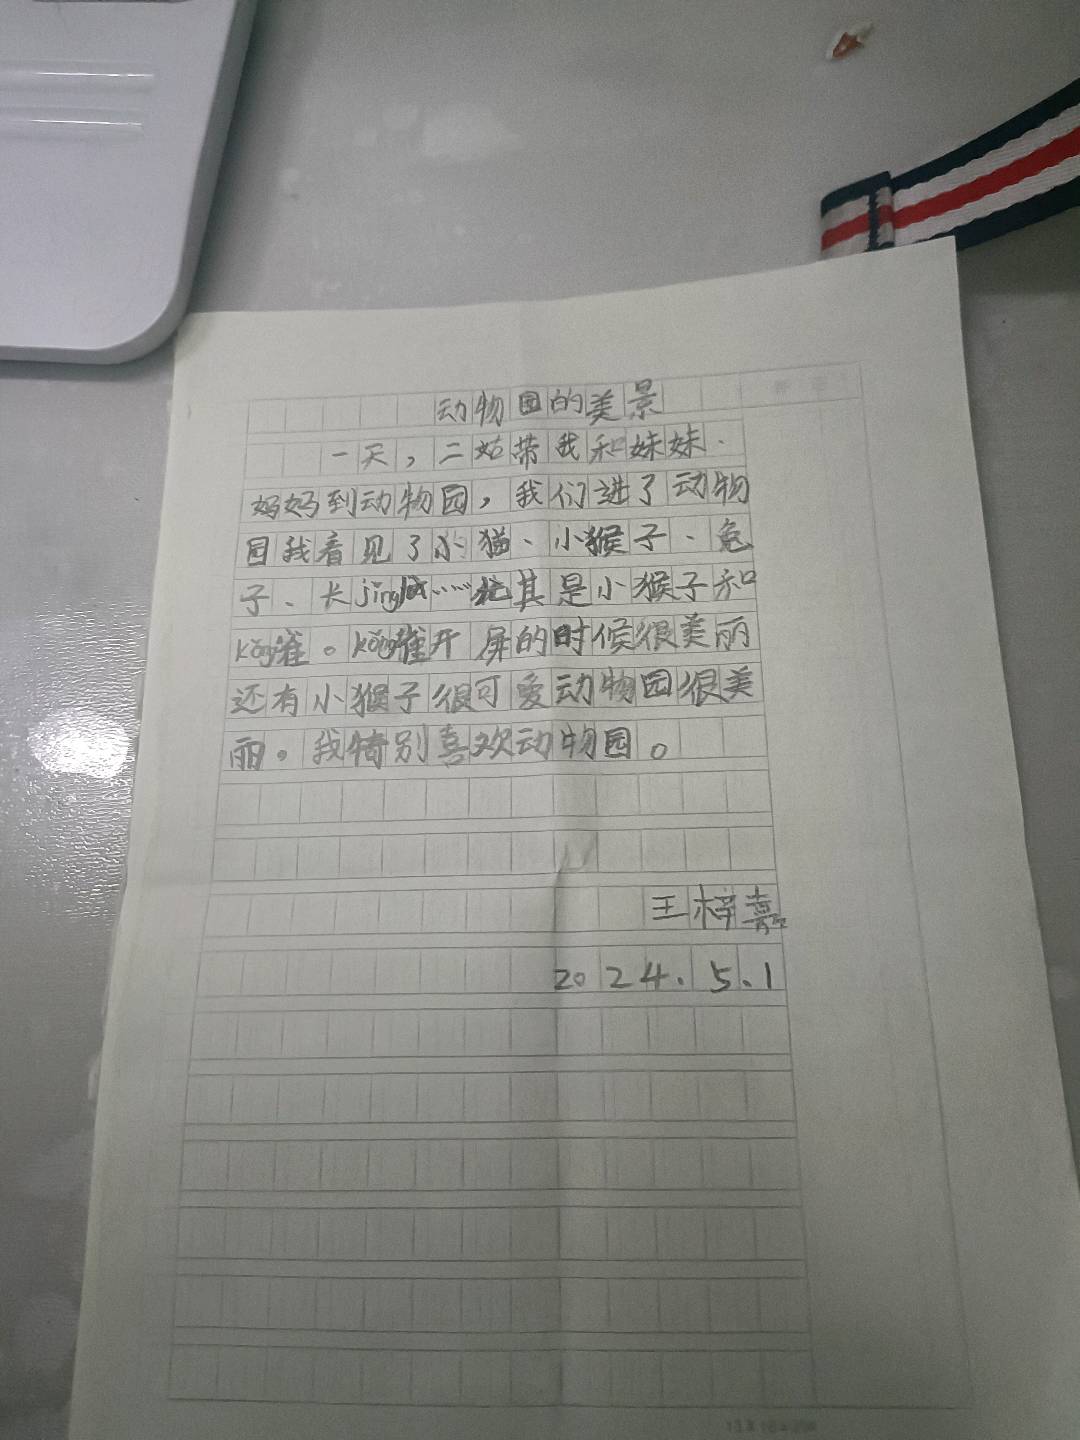 动物园的美景
一天，二姑带我和妹妹、
妈妈到动物园，我们进了动物
园我看见了小猫、小猴子、兔
子、长jǐng鹿……尤其是小猴子和
kǒng雀。kǒng雀开屏的时候很美丽
还有小猴子很可爱动物园很美
丽。我特别喜欢动物园。
王梓嘉
2024.5.1